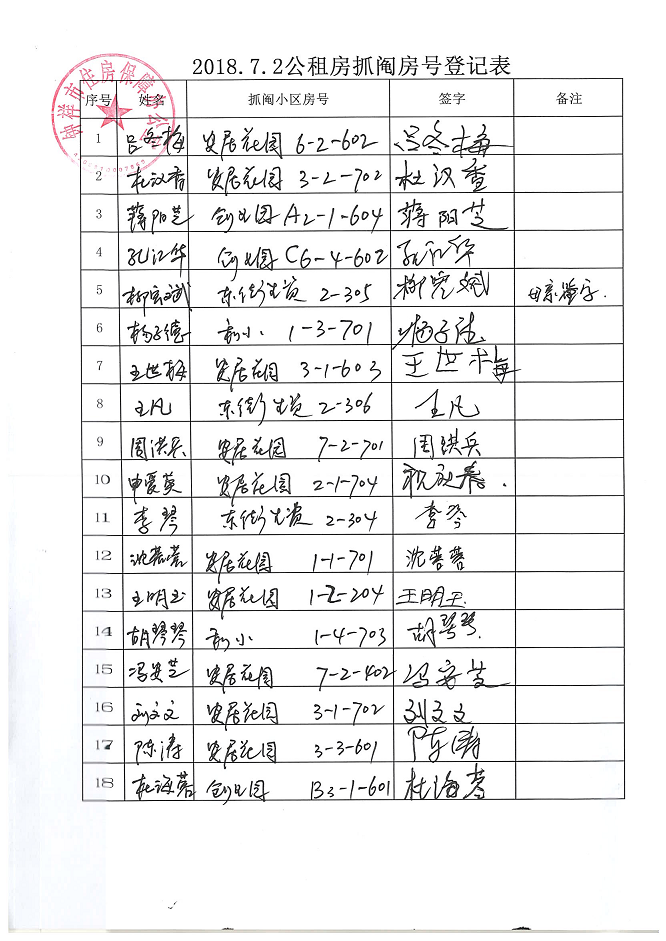 2018.7.2公租房抓阄房号登记表
钟祥市住房保障办公室
序号 姓名 抓阄小区房号 签字 备注
1 吕冬梅 安居花园 6-2-602 吕冬梅
2 杜汉香 安居花园 3-2-702 杜汉香
3 蒋阳芝 创业园 A2-1-604 蒋阳芝
4 孔江华 创业园 C6-4-602 孔江华
5 柳宾斌 东街 2-305 柳 斌 母亲签字.
6 杨子德 小 1-3-701 杨子德
7 王世梅 安居花园 3-1-603 王世梅
8 王凡 东街 2-306 王凡
9 周洪兵 安居花园 7-2-701 周洪兵
10 申夏英 安居花园 2-1-704
11 李琴 东街 2-304 李琴
12 沈蓉蓉 安居花园 1-1-701 沈蓉蓉
13 王明玉 安居花园 1-2-204 王明玉
14 胡琴琴 小 1-4-703 胡琴琴
15 冯安芝 安居花园 7-2-402 冯安芝
16 刘文文 安居花园 3-1-702 刘文文
17 陈涛 安居花园 3-3-601 陈涛
18 杜海蓉 创业园 B3-1-601 杜海蓉